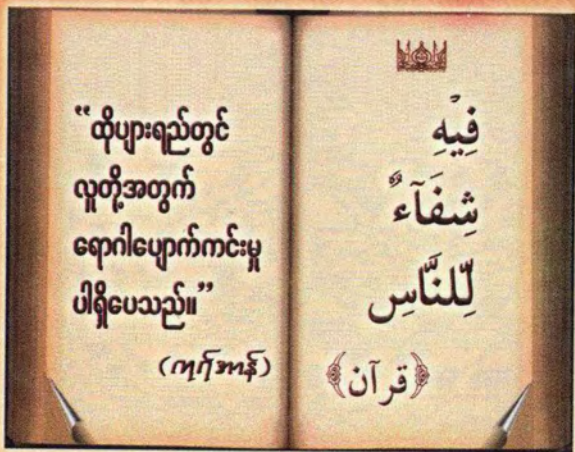 “ထိုပျားရည်တွင်
လူတို့အတွက်
ရောဂါပျောက်ကင်းမှု
ပါရှိပေသည်။”
(ကုရ်အာန်)
فِيْهِ
شِفَآءٌ
لِّلنَّاسِ
﴿قرآن﴾